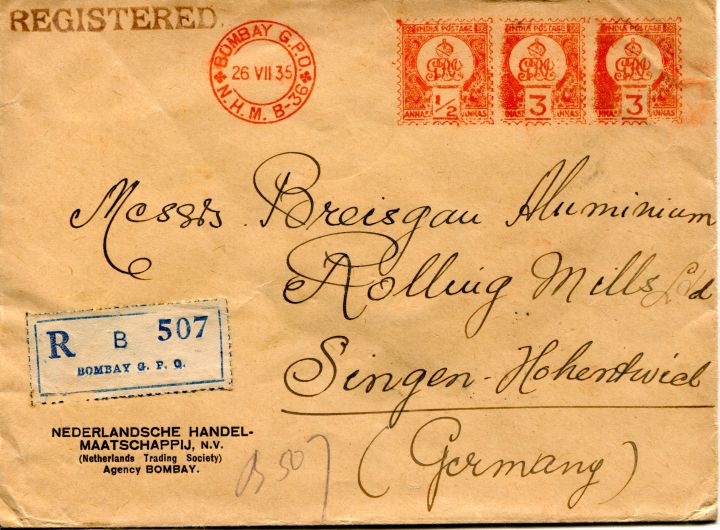 REGISTERED.
BOMBAY G.P.O.
26 VII 35
N.H.M. B-36
INDIA POSTAGE
1/2
ANNAS ANNAS
INDIA POSTAGE
3
ANNAS ANNAS
INDIA POSTAGE
3
ANNAS ANNAS
Messrs Breisgau Aluminium
Rolling Mills Ltd
Singen-Hohentwiel
(Germany)
R B 507
BOMBAY G. P. O.
NEDERLANDSCHE HANDEL-
MAATSCHAPPIJ, N.V.
(Netherlands Trading Society)
Agency BOMBAY.
B 507